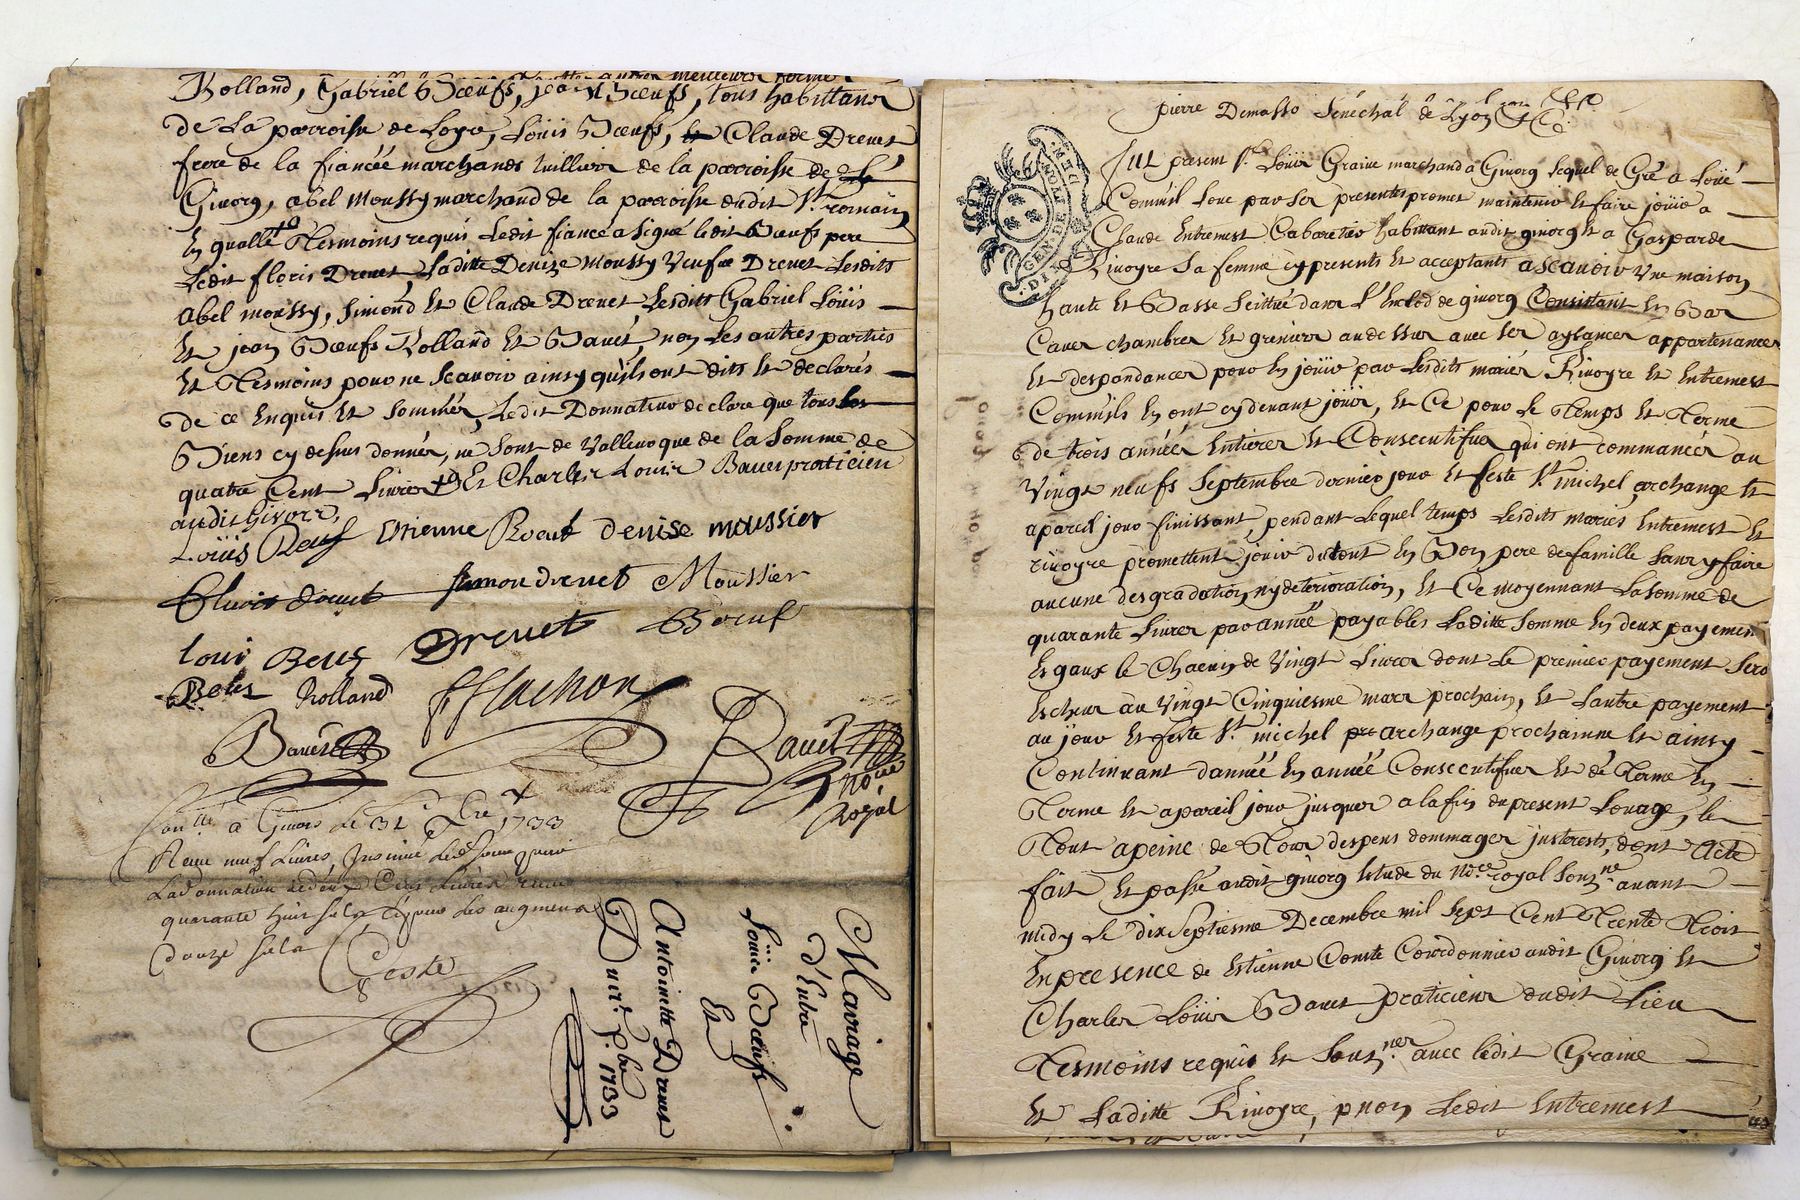 Rolland, Gabriel Bœufs, jean Bœufs, tous habittans
de La parroisse de Loyre, Loüis Bœufs, Claude Drevet
frere de la fiancée marchands tuillier de la parroisse de
Givorg, abel moussy marchand de la parroisse dudit St. romain
En quallité Tesmoins requis Ledit fiancé a signé ledit Bœufs pere
Ledit floris Drevet, Laditte Denize moussy veufve Drevet Lesdits
Abel moussy, simond Et Claude Drevet, Lesdits Gabriel Loüis
Et jean Bœufs Rolland Et Bavet, non Les autres parties
Et Tesmoins pour ne scavoir ainsy qu'ils ont dits Et declarés
de ce Enquis Et sommés, Ledit Donnateur declare que tous les
Biens cy dessus donnés, ne sont de valleur que de la somme de
quatre Cent Livres Et Charles Louis Bavet praticien
audit Givorz,
Loüis Beuf Etienne Boeuf Denise moussier
fluris drevet simon drevet Moussier
loui Beus Drevet Boeuf
Rolland FFlachon
Bavet Bavet
Nore
Royal
Con.llé a Givors le 31 Xbre 1733
Receu neuf Livres, Insinué led. jour pour
La donnation de deux Cens Livres receu
quarante huit sols Et pour les augmens
douze sols
Coste
Mariage
d'Entre
Loüis Bœufs
Et
Antoinette Drevet
Du 1733
pierre Demasso senéchal de Lyon
Fut present Sr. Loüis Graine marchand a Givorg Lequel de Gré a Loüé
Comm'il Loue par ses presentes promet maintenir Et faire joüir a
Claude Entremest Cabaretier habittant audit givorg Et a Gasparde
Rivoyre sa femme cy presents Et acceptants ascavoir Une maison
haute Et Basse scittuée dans L'Enclos de givorg Consistant En Bas
Caves chambres Et greniers au dessus avec ses aysances appartenances
Et despandances pour En joüir par Lesdits mariés Rivoyre Et Entremest
Comm'ils En ont cy devant joüis, Et Ce pour Le Temps Et Terme
de trois année Entieres Et Consecutifves qui ont commancés au
Vingt neufs septembre dernier jour Et feste St. michel archange Et
a pareil jour finissant, pendant Lequel temps Lesdits mariés Entremest Et
rivoyre promettent joüir du tout En Bon pere de famille sans y faire
aucune desgradation ny deterioration, Et Ce moyennant La somme de
quarante Livres par année payables Laditte somme En deux payemens
Egaux le Chacun de Vingt Livres dont Le premier payement sera
Escheus au Vingt Cinquiesme mars prochain, Et L'autre payement
au jour Et feste St. michel archange prochainne Et ainsy
Continuant d'année En année Consecutifves Et de Terme En
Terme Et a pareil jour jusques a la fin du present Louage, le
Tout apeine de Tous despens dommages justerests, dont Acte
fait Et passé audit givorg Estude du Nore. royal souz.né avant
midy Le dix septiesme Decembre mil sept Cent Trente Trois
En presence de Estienne Comte Courdonnier audit Givorg Et
Charles Loüis Bavet praticien dudit Lieu
Tesmoins requis Et souz.nés avec ledit Graine
Et Laditte Rivoyre, p non Ledit Entremest
GEN DE LYON